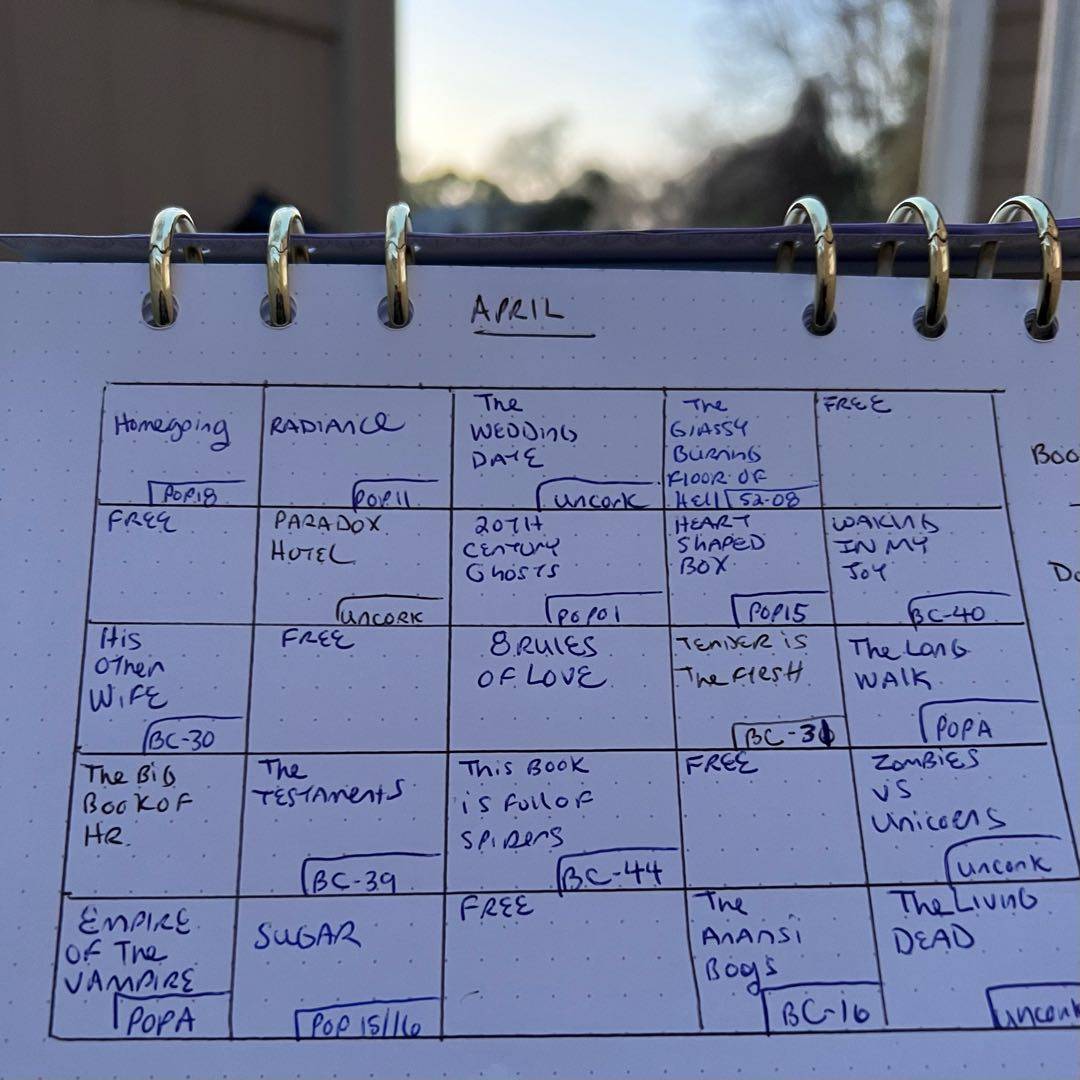 APRIL
Homegoing
POP18
RADIANCE
POP11
The
WEDDING
DATE
uncork
The
GlASSY
Burning
Floor of
Hell
52-08
FREE
Boo
FREE
PARADOX
HOTEL
uncork
20TH
CENTURY
GhosTs
POP01
HEART
SHAPED
BOX
POP15
WAKING
IN MY
JOY
BC-40
Do
His
Other
WiFE
BC-30
FREE
8 RULES
OF LOVE
TENDER is
The Flesh
The Long
WALK
POPA
The Big
Book of
HR
The
TESTAments
BC-39
This Book
is Full of
SPiDErs
BC-44
FREE
ZOMBiES
vs
Unicorns
unconk
EMPIRE
OF The
VAMPIRE
POPA
SUGAR
POP 15/16
FREE
The
Anansi
Boys
BC-16
The Living
DEAD
unconk